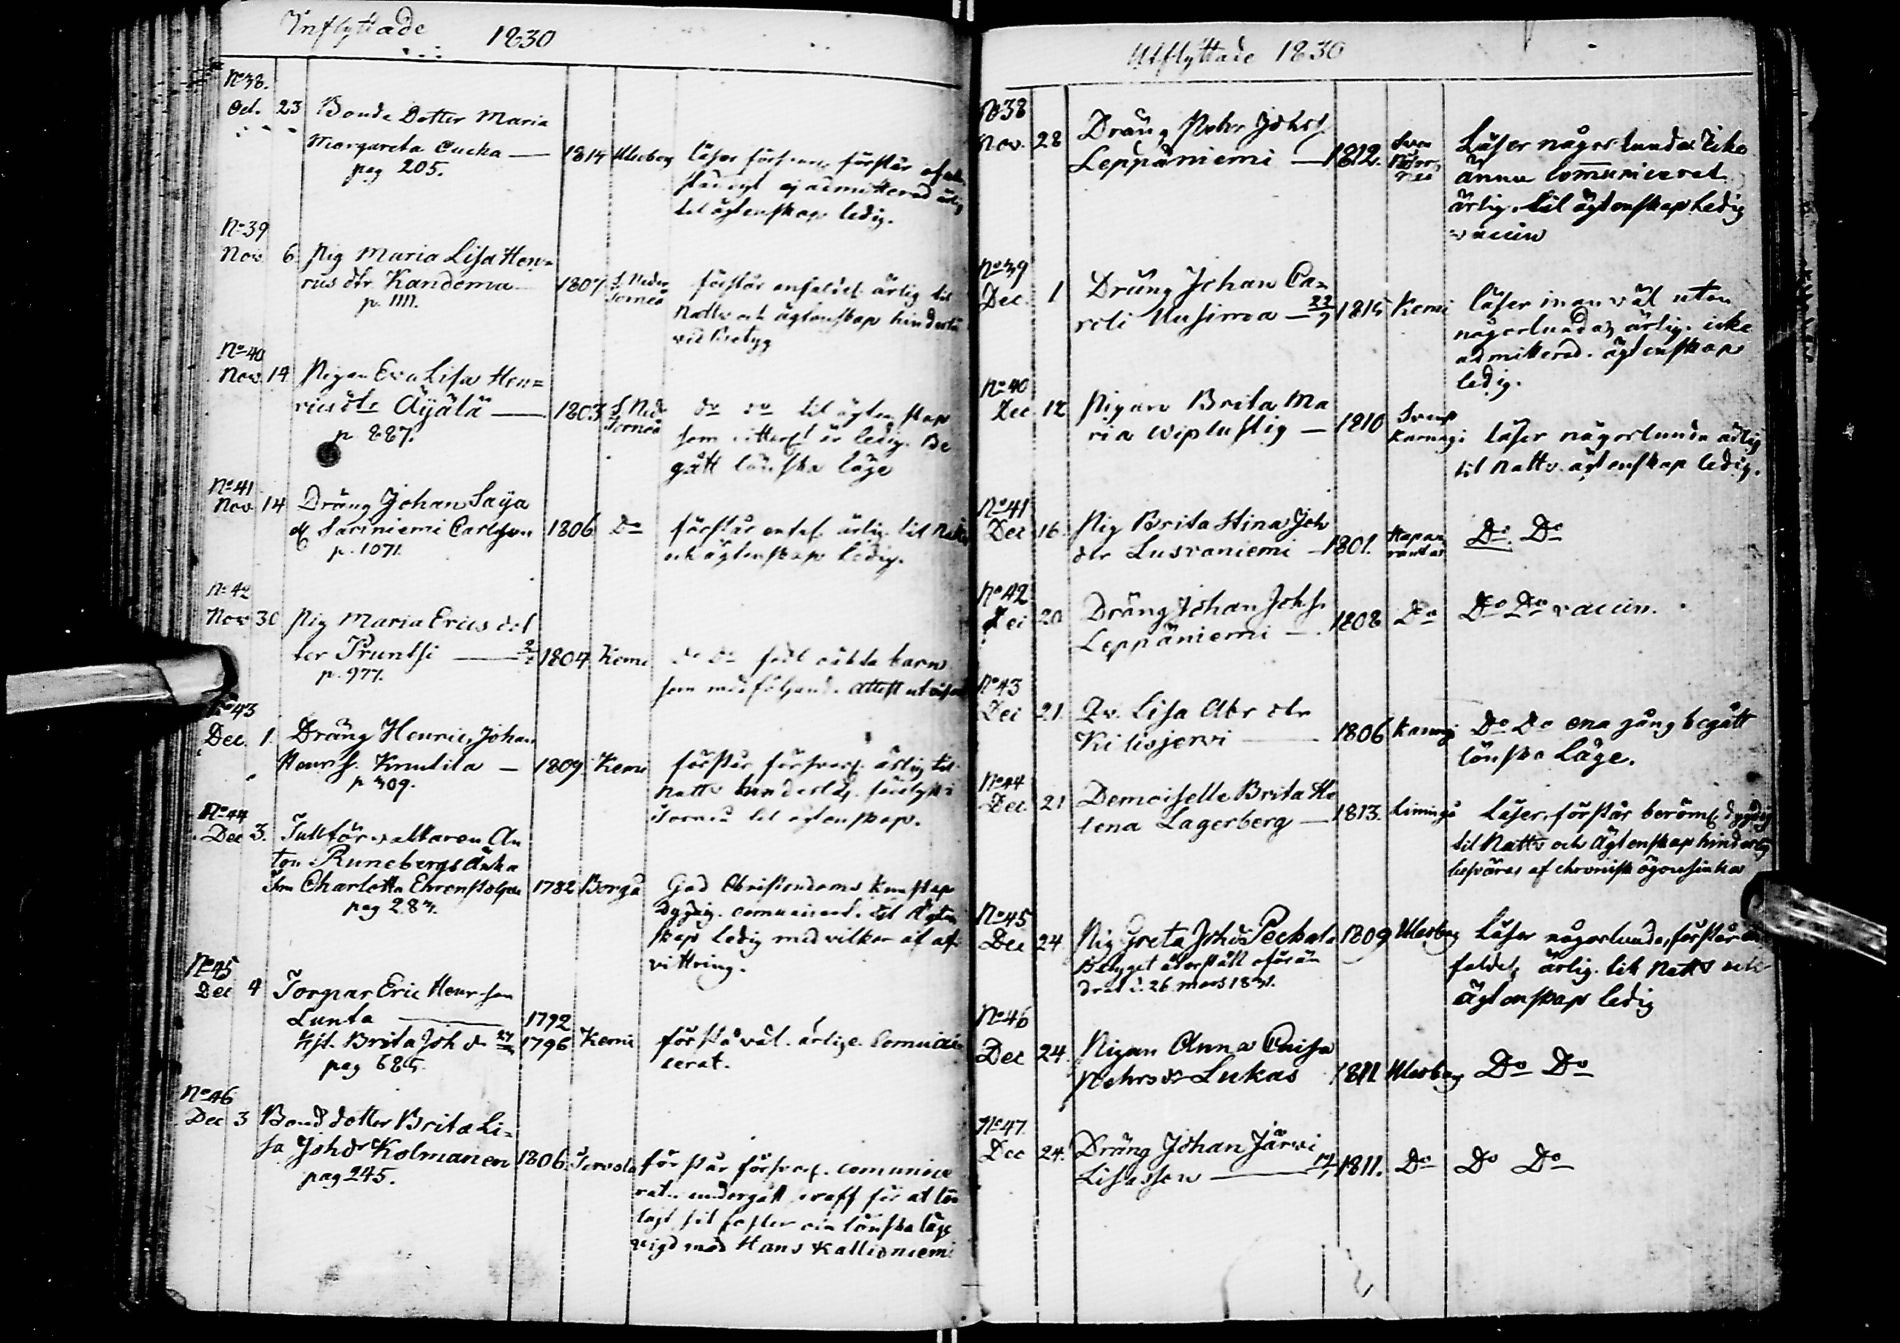 Inflyttade 1830
No 38.
Oct. 23 Bonde Dotter Maria
Margareta Cucka — 1814 Uleåborg
pag 205.
läser förswar. förstår
ej admitterad
til ägtenskap ledig.
No 39
Nov 6. Pig Maria Lisa Hen=
rics dtr Kandema — 1807 N. Neder
Torneå
p. 1111.
förstår enfaldt. ärlig til
Nattv. och ägtenskap hinderlös
No 40
Nov. 14 Pigan Eva Lisa Hen=
rics dtr Äÿälä — 1803 N. Ned.
Torneå
p 887.
do do til ägtenskap
som är ledig. Be
gått lönska läge
No 41
Nov 14 Dräng Johan Saÿa
Sariniemi Carlsson 1806 Do
p. 1071.
förstår enfal. ärlig til Nattv.
och ägtenskap ledig.
No 42
Nov 30 Pig Maria Erics dot
ter Pruntsi — 1804 Kemi
p. 977.
do do födt oäkta barn
som medföljande attest utvisar
No 43
Dec. 1. Dräng Henric, Johan
Henrs. Knutila — 1809 Kemi
p 309.
förstår försvarl. ärlig til
Nattv. hinderlös.
Torneå til ägtenskap.
No 44
Dec 3. Tullförvaltaren An
ton Runebergs Änka
Charlotta Ehrenstolpe 1782 Borgå
pag 283.
God Christendoms kunskap
Dygdig. comunicerat. til ägten
skap ledig med vilkor af af=
vittring.
No 45
Dec 4 Torpar Eric Henr. son
Lunta — 1792
hst. Brita Joh dr 1796 Kemi
pag 685.
förstå väl. ärlige. Comuni
cerat.
No 46
Dec 3 Bond dotter Brita Li=
sa Johdr Kolmanen 1806 Tervola
pag 245.
förstår försvarl. comunice
rat. undergått straff för
lönska läge
vigd med Hans Kallioniemi
Utflyttade 1830
No 38
Nov. 28 Dräng Pehr Johs.
Leppäniemi — 1812.
Läser någorlunda. Icke
ännu Comuniceret
ärlig. til ägtenskap ledig
vaccin
No 39
Dec. 1 Dräng Johan Ca=
roli Uusimaa — 1815 Kemi
läser innan väl utan
någorlunda, ärlig. icke
admitterad. ägtenskap
ledig.
No 40
Dec 12 Pigan Brita Ma
ria Wiplustig — 1810 Svensk
Karungi
läser någorlunda ärlig
til Nattv. ägtenskap ledig.
No 41
Dec 16. Pig Brita Stina Joh
dtr Lusvaniemi — 1801. Hapa
randa
Do Do
No 42
Dec 20 Dräng Johan Johs.
Leppäniemi — 1808 Do
Do Do vaccin.
No 43
Dec 21. Lisa Abr dtr
Kilisjerwi — 1806 Karungi
Do Do ena gång begått
lönska Läge.
No 44
Dec 21 Demoiselle Brita He
lena Lagerberg — 1813. Limingo
Läser, förstår beröml. dygdig
til Nattv. och Ägtenskap hinderlös
besväras af chronisk ögonsiuka
No 45
Dec 24. Pig Greta Johdr Peckala 1809 Uleåborg
Betyget återstält oförän
drat d. 26 mars 1831.
Läser någorlunda, förstår en
faldt, ärlig. til Nattv. och
ägtenskap ledig
No 46
Dec 24. Pigan Anna Caisa
Pehrs dr Lukas 1811 Uleåborg
Do Do
No 47.
Dec 24. Dräng Johan Järvi
Lisasson — 1811. Do
Do Do